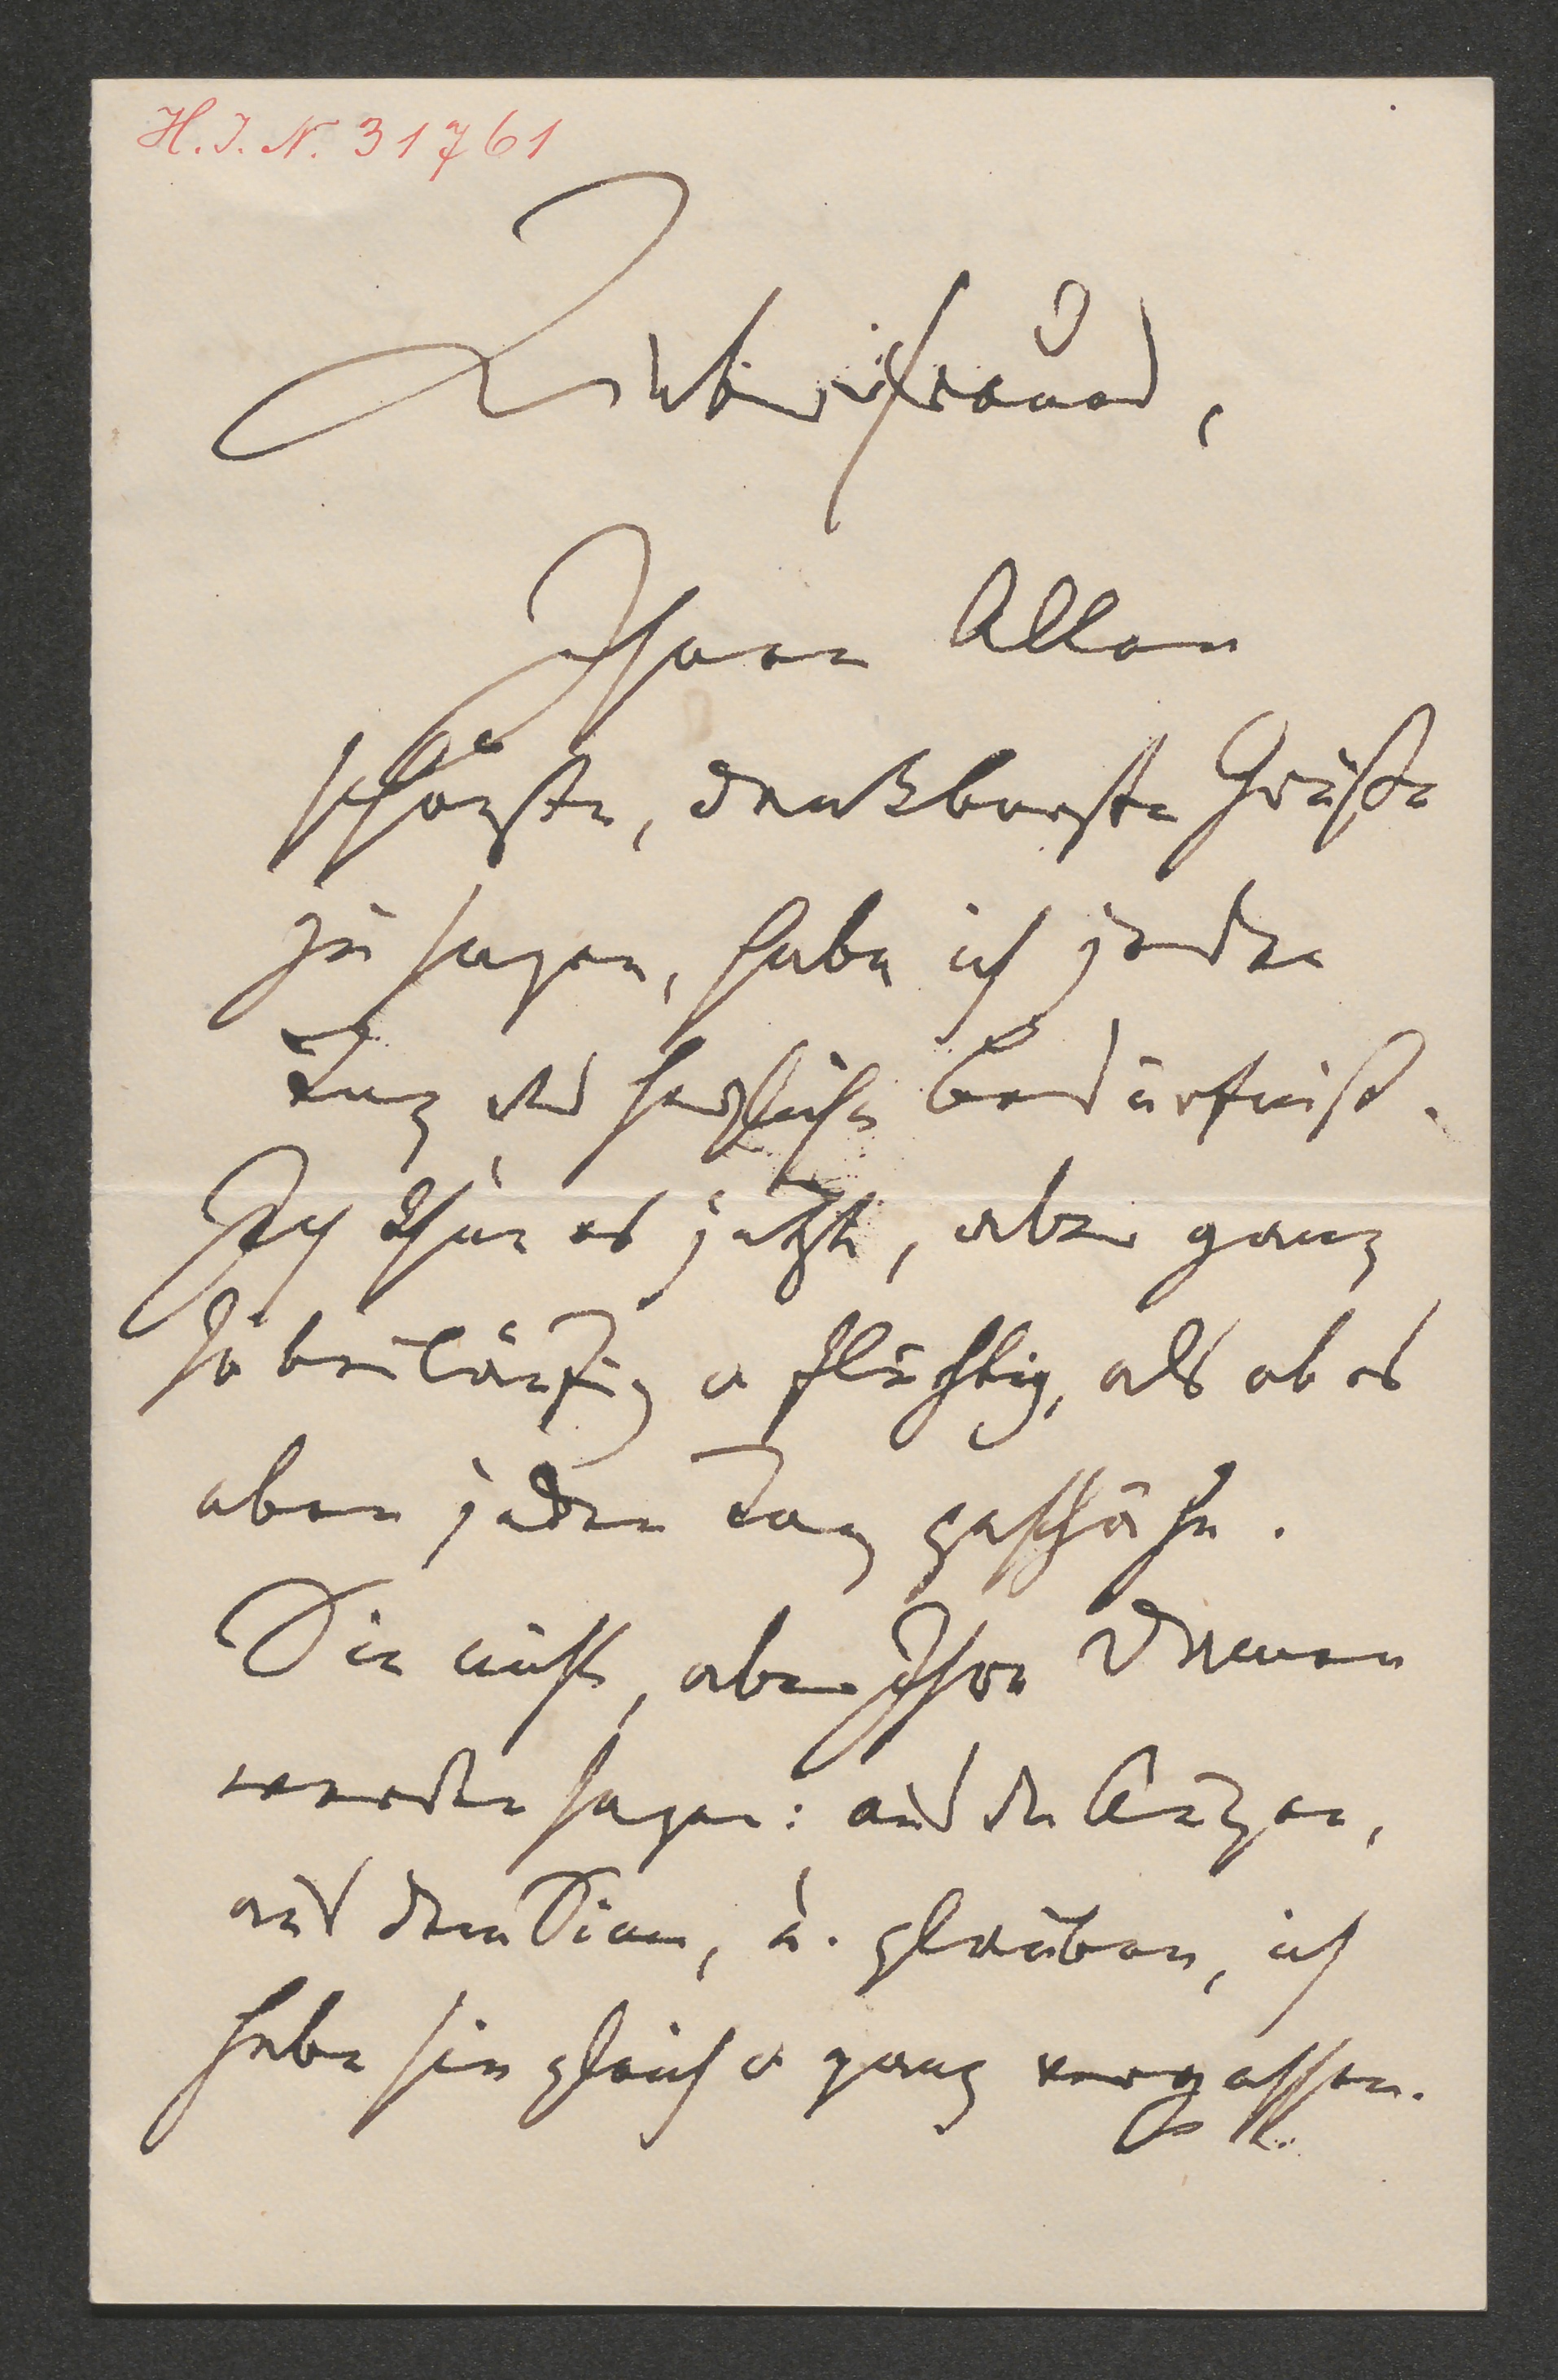 H. I. N. 31761
Liebster Freund,
Ihnen Allen
schönste, dankbarste Grüße
zu sagen, habe ich jeden
Tag das herzlichste Bedürfniß.
Ich thue es jetzt, aber ganz
so beiläufig u flüchtig, als ob es
eben jeden Tag geschähe.
Sie nicht, aber Ihre Damen
werden sagen: aus den Augen,
aus dem Sinn, u. glauben, ich
habe sie gleich u ganz vergessen.